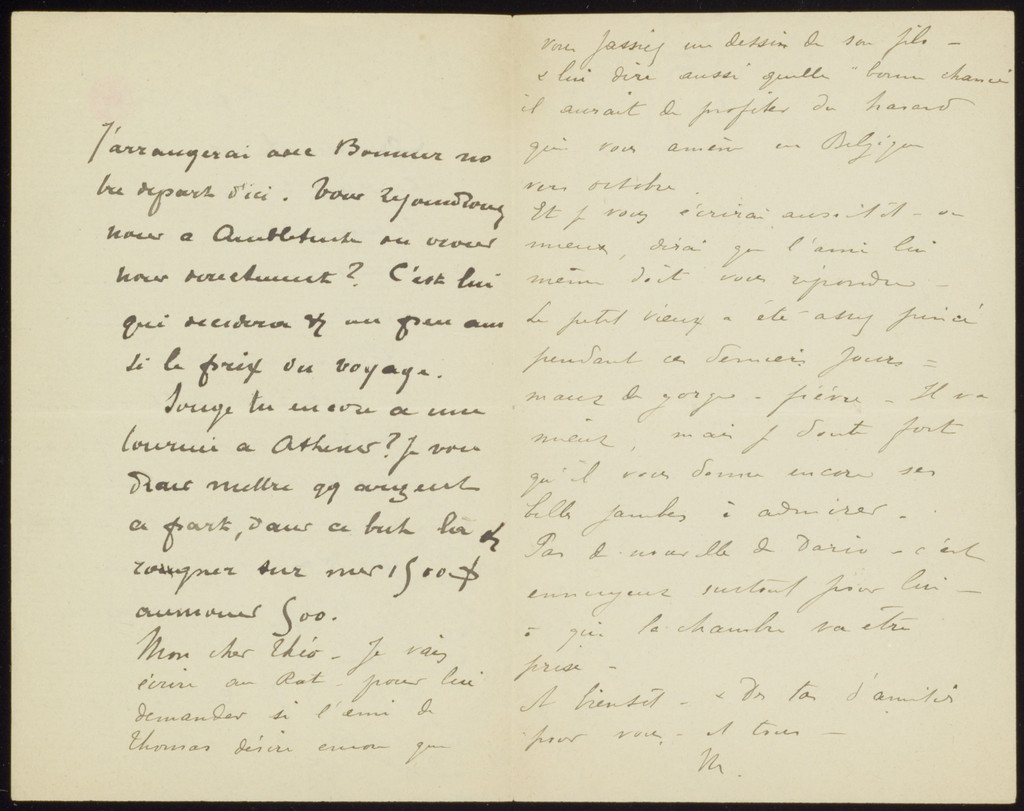 J'arrangerai avec Bonnier no
tre depart d'ici. Vous rejoindrons
nous a Ambleteuse ou venez
nous directement? C'est lui
qui decidera & un peu aus
si le prix du voyage.
Songe tu encore a une
tournée a Athenes? Je vou
drais mettre qq argent
a part, dans ce but là &
rogner sur mes 1500 f
aumoins 500.
Mon cher Théo - Je vais
écrire au Rat - pour lui
demander si l'ami de
Thomas désire encore que
vous fassiez un dessin de son fils -
& lui dire aussi quelle "bonne chance
il aurait de profiter du hasard
qui vous amène en Belgique
vers octobre.
Et je vous écrirai aussitôt - ou
mieux, dirai que l'ami lui
même doit vous répondre -
Le petit vieux a été assez pincé
pendant ces derniers jours =
maux de gorge - fièvre - Il va
mieux, mais je doute fort
qu'il vous donne encore ses
belles jambes à admirer -
Pas de nouvelle de Dario - c'est
ennuyeux surtout pour lui -
à qui la chambre va être
prise -
A bientôt - & Des tas d'amitiés
pour vous - A tous -
M.